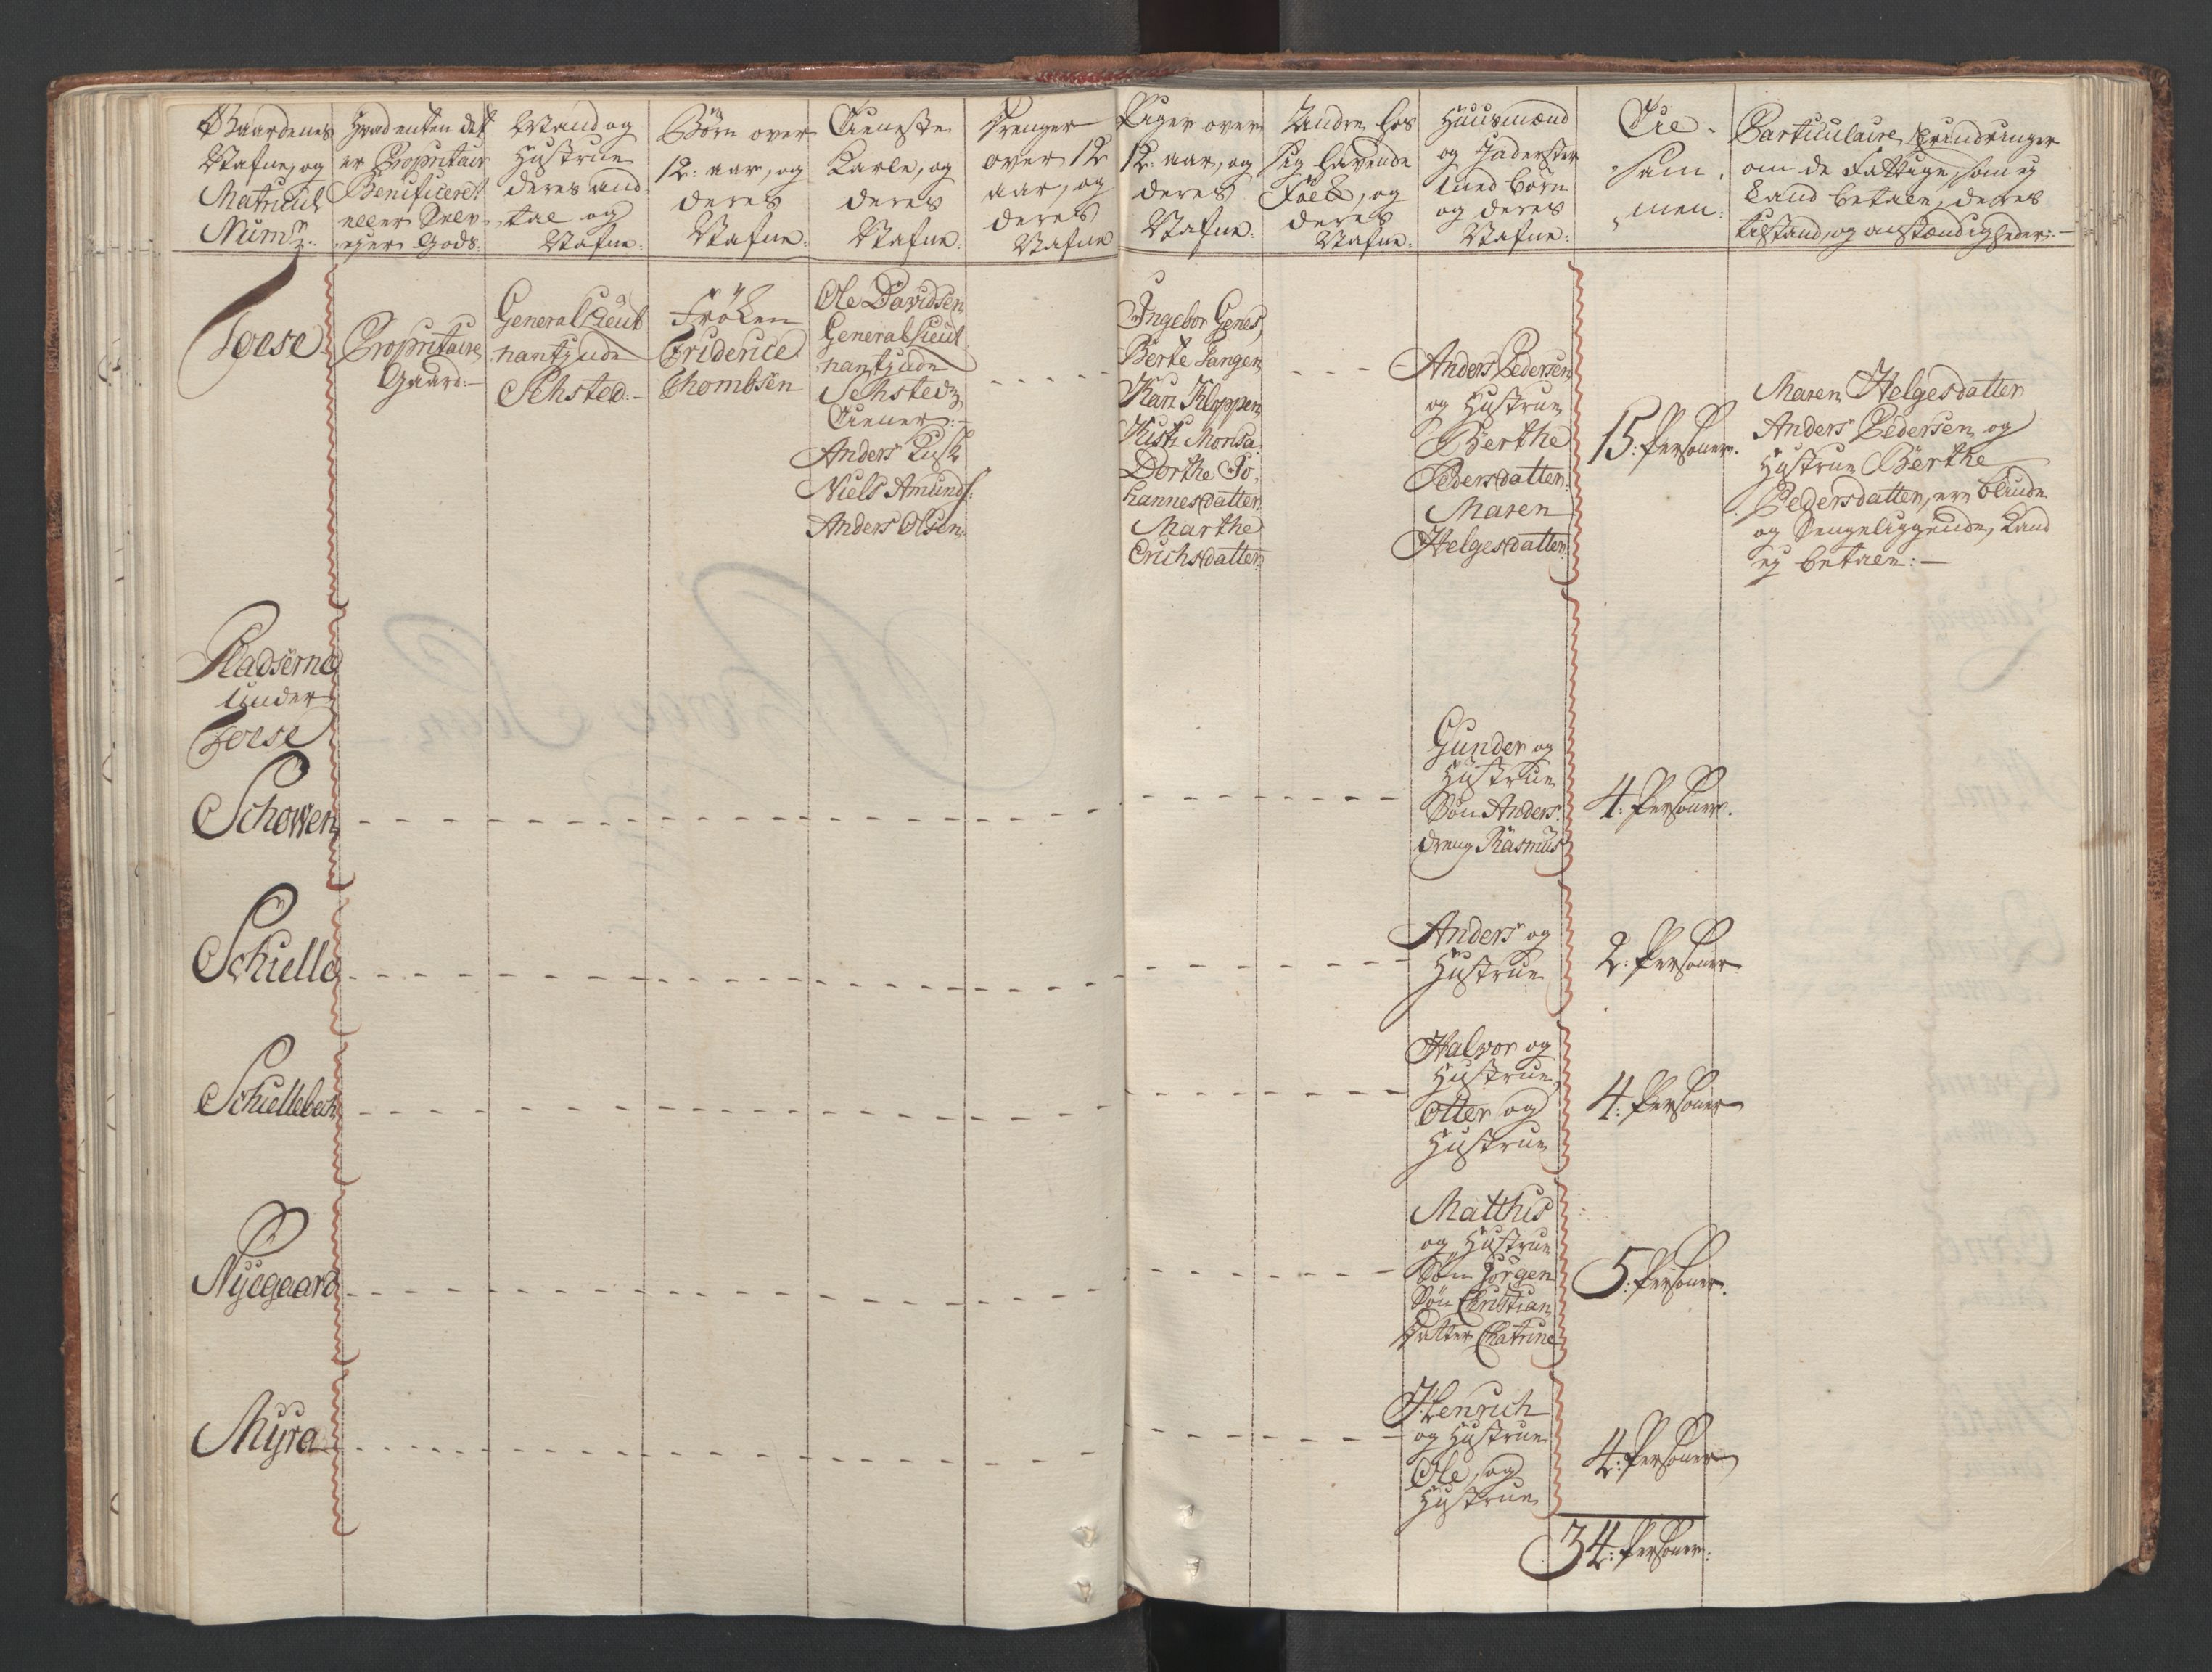 Gaardenes
Nafne, og
Matricul
Num:
Hvad enten det
er Propritair
Benificeret
eller Selv-
ejer Gods:
Mand og
Hustrue
deres and
tal og
Nafne:
Børn over
12: aar, og
deres
Nafne:
Tieneste
Karle, og
deres
Nafne:
Drenger
over 12
aar, og
deres
Nafne
Piger over
12: aar, og
deres
Nafne:
Andre hos
sig havende
Folk, og
deres
Nafne:
Huusmænd
og Inderster
med børn
og deres
Nafne:
Til-
sam,
men:
Particulaire Erindringer
om de Fattige, som ej
kand betale, deres
tilstand, og omstændigheder:
Foese
Propritaire
Gaard:
General Lieut
nantinde
Sehsted:
Frøken
Friderice
Thombsen
Ole Davidsen
General Lieut
nantinde
Sehsteds
Tiener:
Anders Kusk
Niels Amunds:
Anders Olsen
Ingebor Genes
Berte Langen
Kari Kloppen
Kisti Monsd.
Dorthe Jo,
hannesdatter
Marthe
Erichsdatter
Anders Pedersen
og Hustrue
Berthe
Pedersdatter
Maren
Helgesdatter
15: Personer.
Maren Helgesdatter
Anders Pedersen og
Hustrue Berthe
Pedersdatter, er blinde
og Sengeliggende, kand
ej betale:
Pladserne
under
Foese
Schowen
Gunder og
Hustrue
Søn Anders
dreng Rasmus
4: Personer.
Schielle
Anders og
Hustrue
2: Personer
Schiellebech
Halvor og
Hustrue
Otter og
Hustrue
4: Personer
Nyegaard
Matthis
og Hustrue
Søn Jørgen
Søn Christian
Datter Chatrine
5: Personer.
Myra
Henrich
og Hustrue
Ole, og
Hustrue
4: Personer
34: Personer: